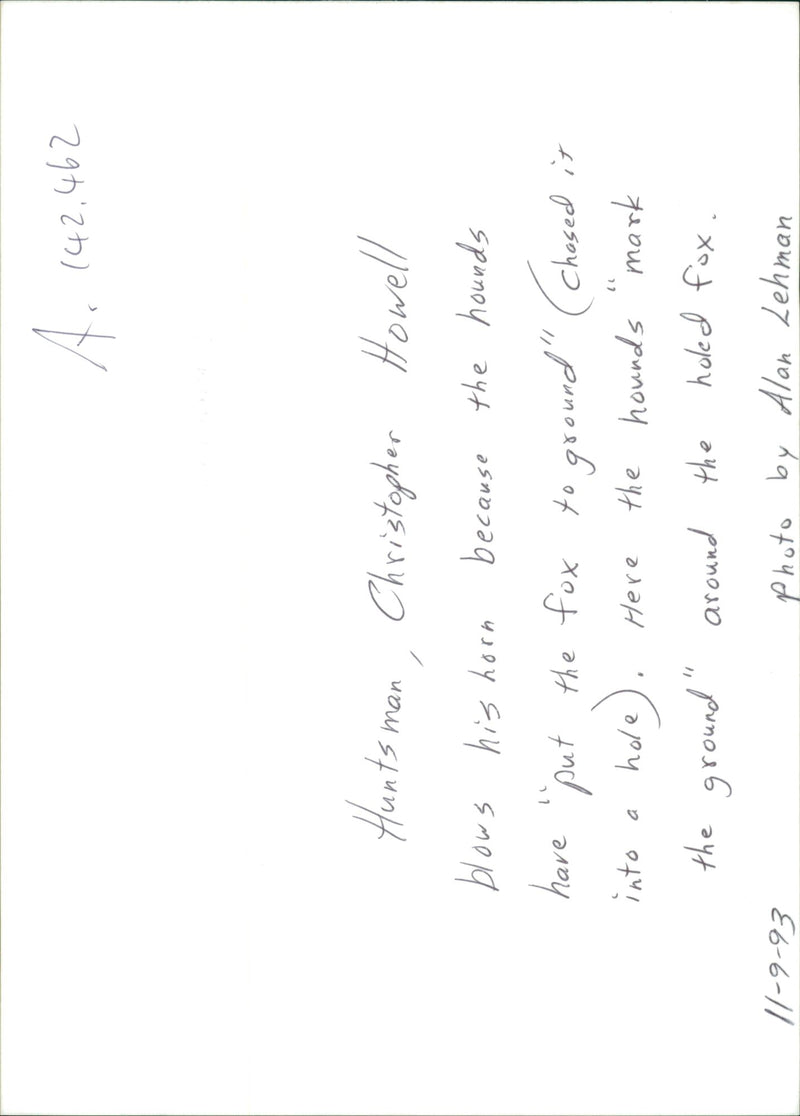 A. 142.462
Huntsman, Christopher Howell
blows his horn because the hounds
have "put the fox to ground" (chased it
into a hole). Here the hounds "mark
the ground" around the holed fox.
11-9-93 Photo by Alan Lehman